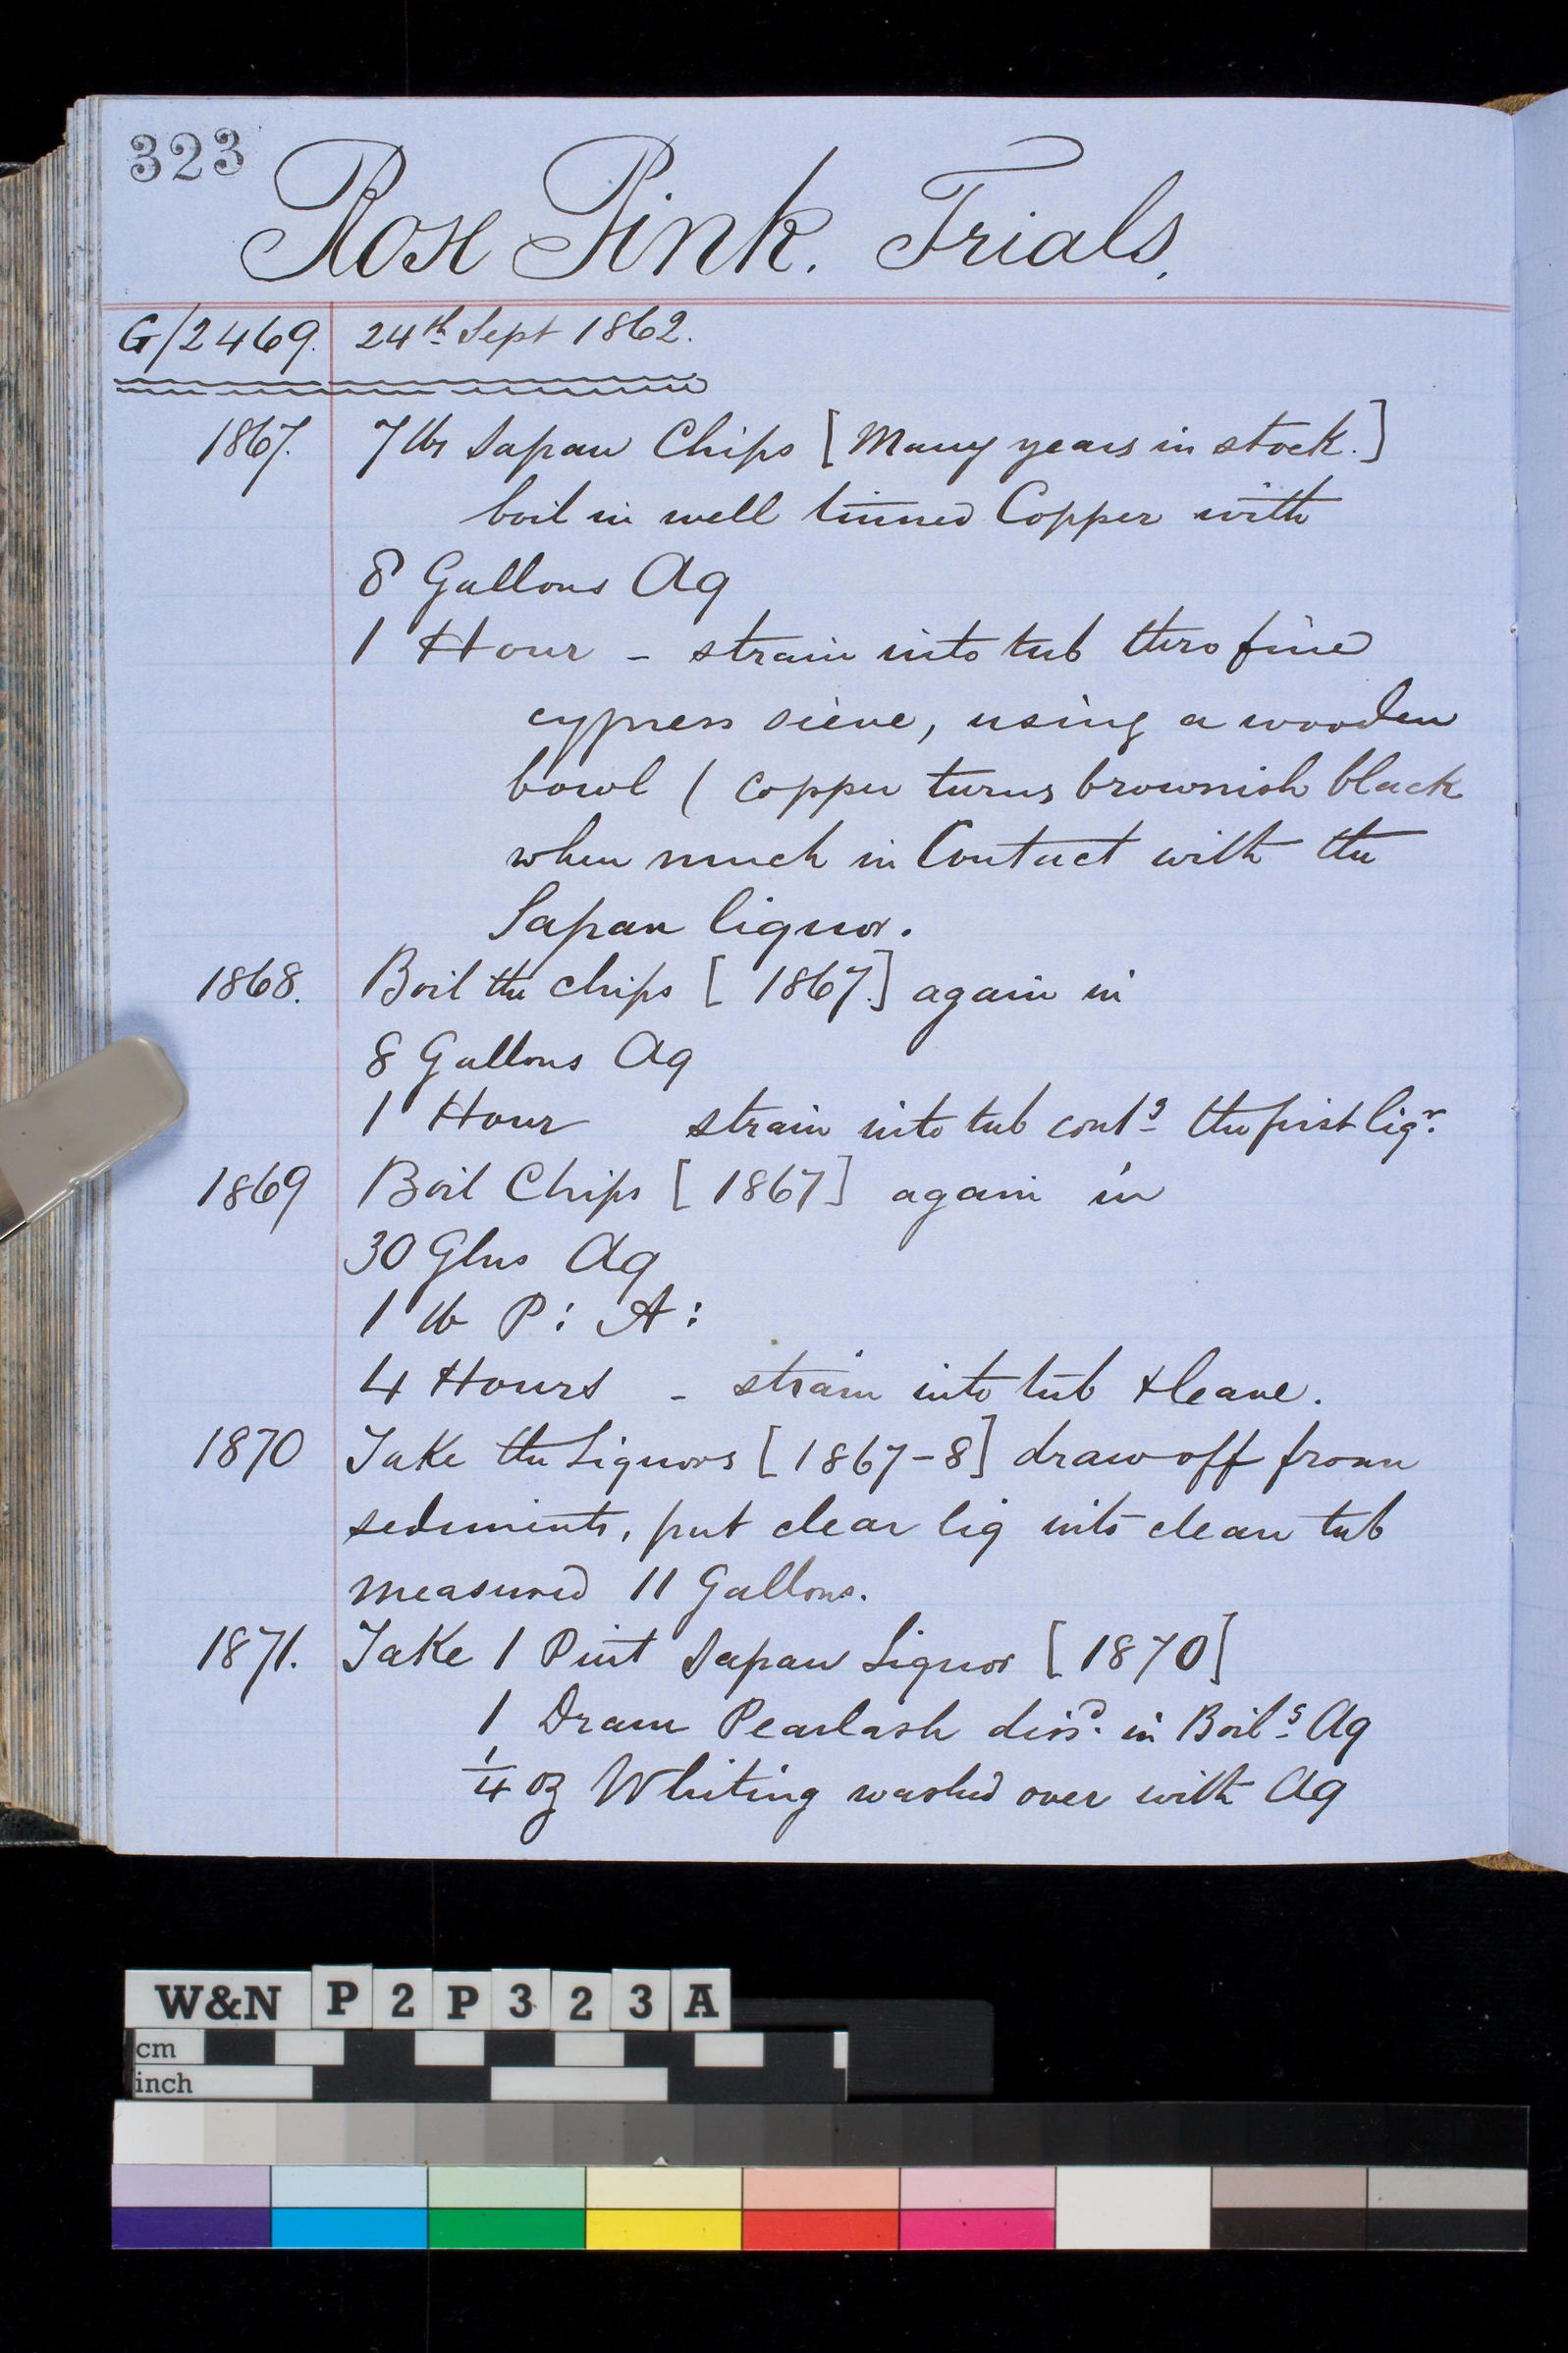 323
Rose Pink. Trials.
G/2469. 24th Sept 1862.
1867. 7 lbs Sapan Chips [Many years in stock.]
boil in well tinned Copper with
8 Gallons Aq
1 Hour - strain into tub thro fine
cypress sieve, using a wooden
bowl ( copper turns brownish black
when much in Contact with the
Sapan liquor.
1868. Boil the chips [1867.] again in
8 Gallons Aq
1 Hour strain into tub contg the first liqr.
1869 Boil Chips [1867] again in
30 Glns Aq
1 lb P: A:
4 Hours - strain into tub & leave.
1870 Take the Liquors [1867-8] draw off from
sediments, put clear liq into clean tub
measured 11 Gallons.
1871. Take 1 Pint Sapan Liquor [1870]
1 Dram Pearlash dissd. in Boilg Aq
1/4 oz Whiting washed over with Aq
W&N P2P323A
cm
inch